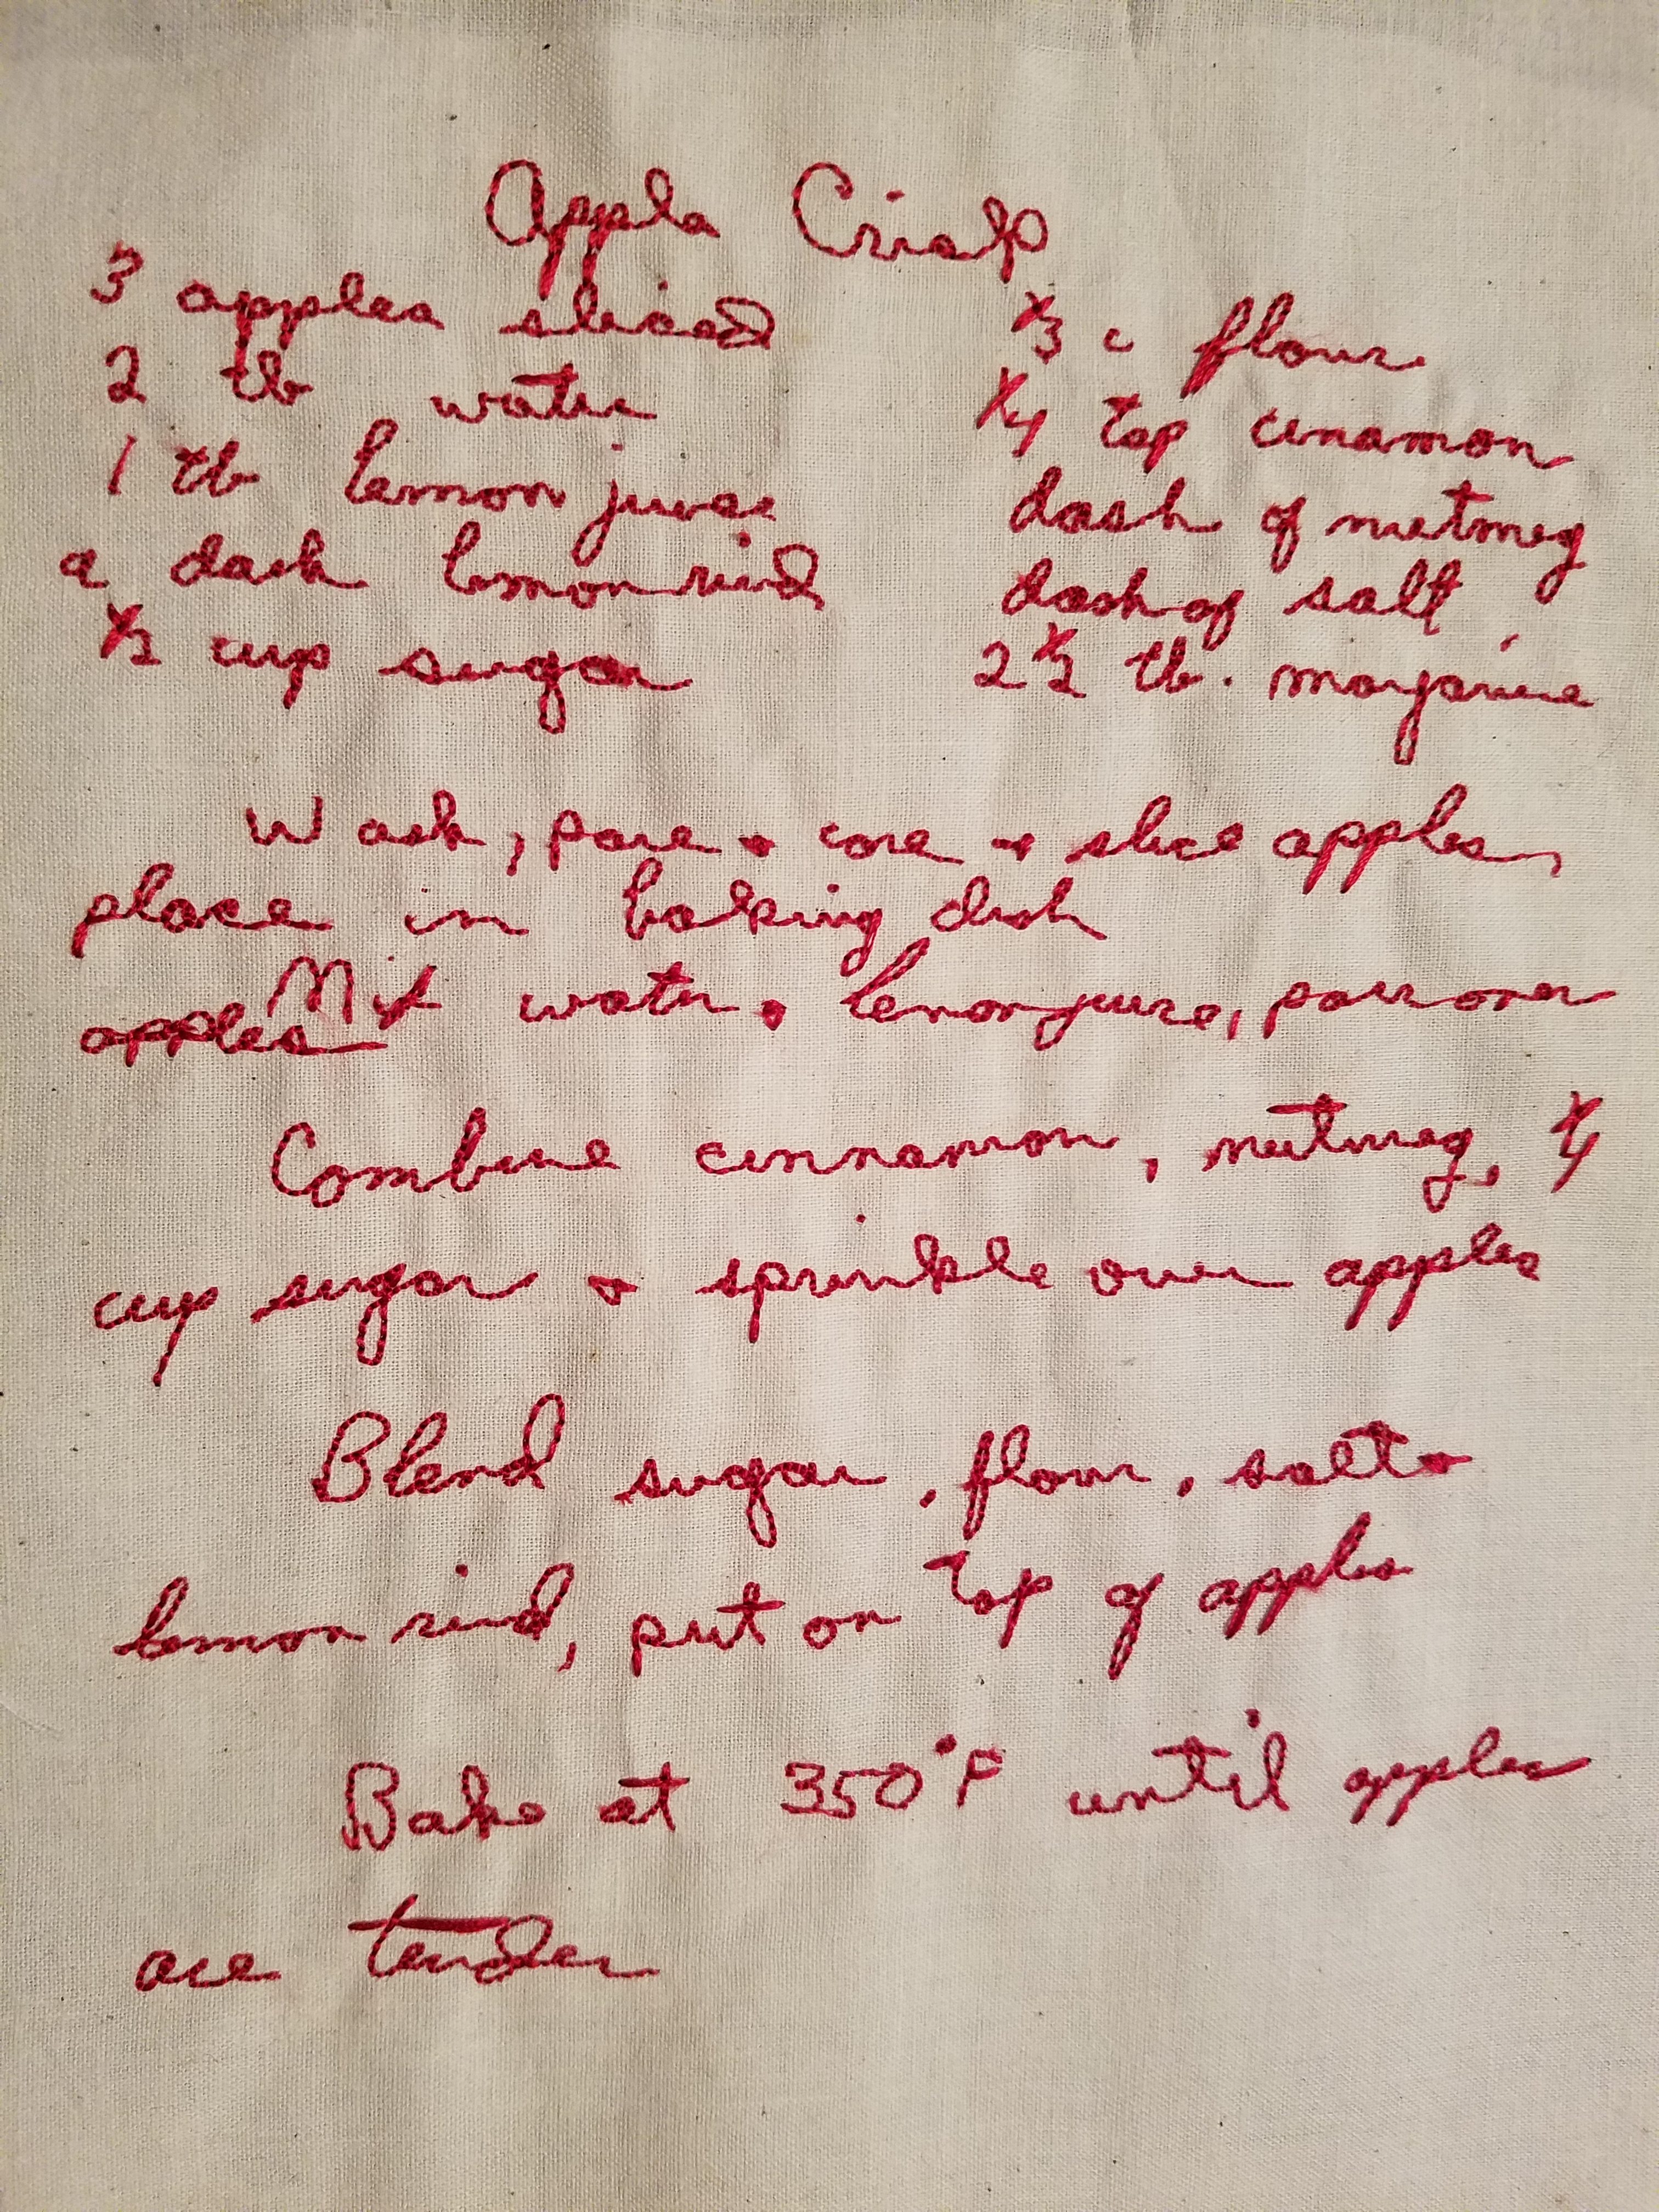 Apple Crisp
3 apples sliced
2 tb water
1 tb lemon juice
a dash lemon rind
1/2 cup sugar
1/3 c flour
1/4 tsp cinamon
dash of nutmeg
dash of salt
2 1/2 tb. margarine
Wash, pare & core & slice apples,
place in baking dish
Mix water & lemon juice, pour over
apples
Combine cinnamon, nutmeg, 1/4
cup sugar & sprinkle over apples
Blend sugar, flour, salt &
lemon rind, put on top of apples
Bake at 350°F until apples
are tender